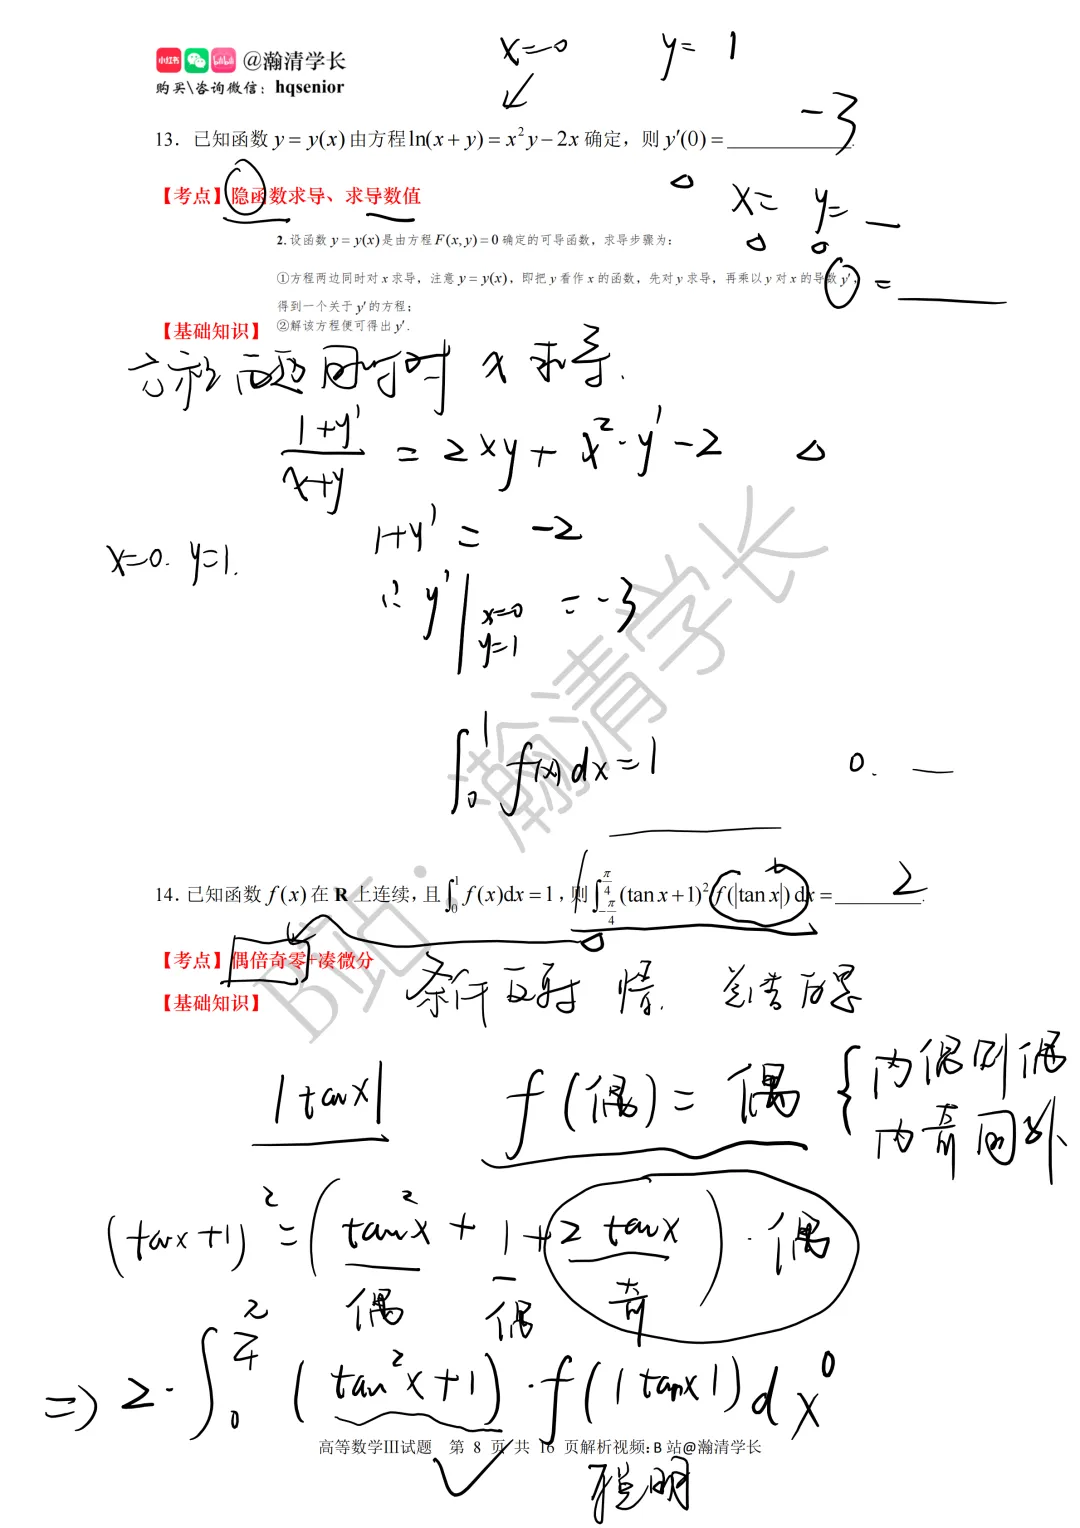 x=0 y=1
小红书 bilibili @瀚清学长
购买\咨询微信：hqsenior
-3
13. 已知函数 y = y(x) 由方程 ln(x + y) = x²y − 2x 确定，则 y′(0) = ____________.
【考点】隐函数求导、求导数值
x= y= —
2. 设函数 y = y(x) 是由方程 F(x, y) = 0 确定的可导函数，求导步骤为：
①方程两边同时对 x 求导，注意 y = y(x)，即把 y 看作 x 的函数，先对 y 求导，再乘以 y 对 x 的导数 y′，
= ____
得到一个关于 y′ 的方程；
【基础知识】 ②解该方程便可得出 y′.
方程两边同时对 x 求导.
(1+y′)/(x+y) = 2xy + x²·y′ − 2
1+y′ = −2
x=0. y=1.
∴ y′|x=0 y=1 = −3
∫₀¹ f(x)dx = 1 0. —
B站：瀚清学长
14. 已知函数 f(x) 在 R 上连续，且 ∫₀¹ f(x)dx = 1，则 ∫_{−π/4}^{π/4} (tan x + 1)² f(|tan x|)dx = ________. 2
【考点】偶倍奇零+凑微分
条件反射
【基础知识】
|tanx| f(偶) = 偶 { 内偶则偶
内奇同外
(tanx+1)² = (tan²x + 1 + 2tanx)·偶
偶 偶 奇
⇒ 2·∫₀^{π/4} (tan²x+1)·f(|tanx|)dx
高等数学III试题 第 8 页 共 16 页解析视频：B 站@瀚清学长
聪明